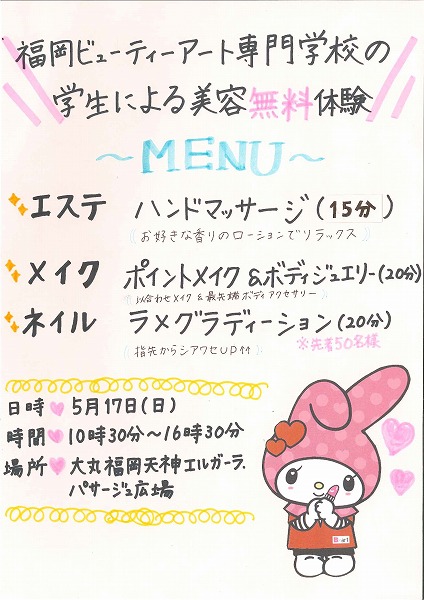 福岡ビューティーアート専門学校の
学生による美容無料体験
～MENU～
エステ ハンドマッサージ(15分)
お好きな香りのローションでリラックス
メイク ポイントメイク&ボディジュエリー(20分)
似合わせメイク&最先端ボディアクセサリー
ネイル ラメグラデーション(20分)
指先からシアワセUP↑↑
※先着50名様
日時♥5月17日(日)
時間♥10時30分～16時30分
場所♥大丸福岡天神エルガーラ.
パサージュ広場